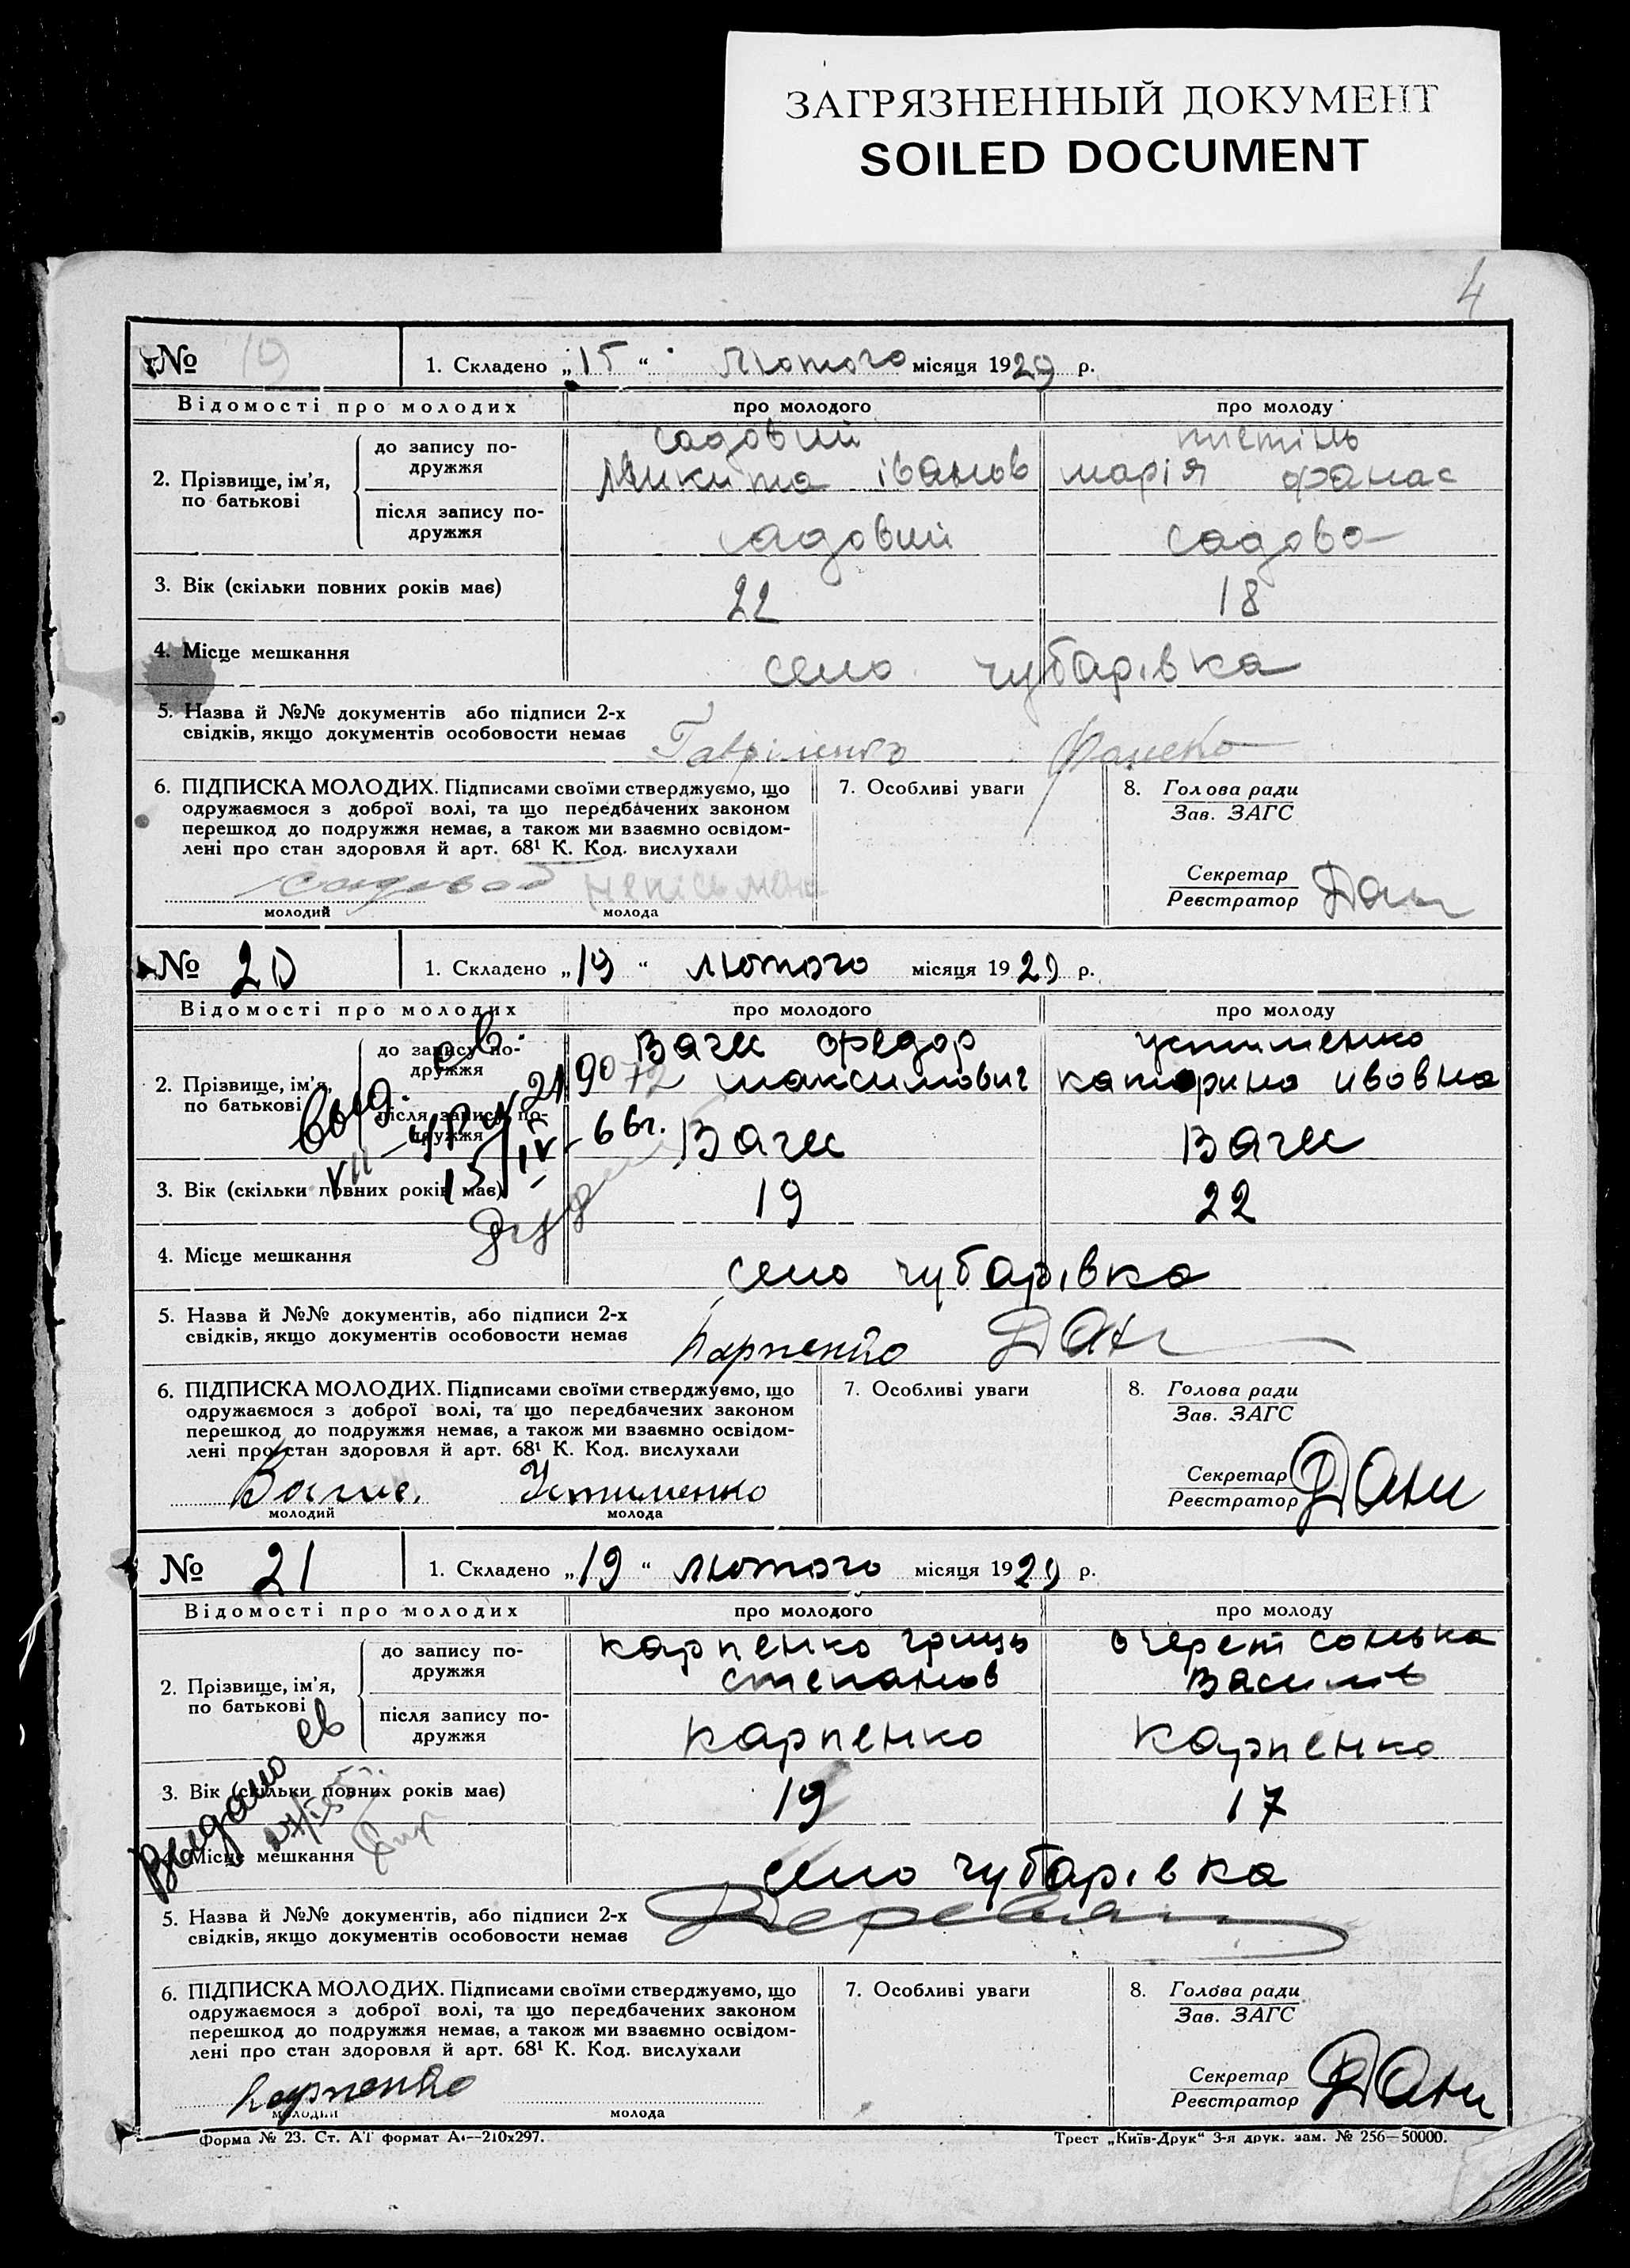 ЗАГРЯЗНЕННЫЙ ДОКУМЕНТ
SOILED DOCUMENT
4
№ 19
1. Складено „15“ лютого місяця 1929 р.
Відомості про молодих
про молодого
про молоду
2. Прізвище, ім'я, по батькові
до запису по-
дружжя
садовий
микита іванов
марія фанас
після запису по-
дружжя
садовий
садова
3. Вік (скільки повних років має)
22
18
4. Місце мешкання
село чубарівка
5. Назва й №№ документів або підписи 2-х
свідків, якщо документів особовости немає
6. ПІДПИСКА МОЛОДИХ. Підписами своїми стверджуємо, що
одружаємося з доброї волі, та що передбачених законом
перешкод до подружжя немає, а також ми взаємно освідом-
лені про стан здоровля й арт. 68¹ К. Код. вислухали
молодий
молода
7. Особливі уваги
8. Голова ради
Зав. ЗАГС
Секретар
Реєстратор
№ 20
1. Складено „19“ лютого місяця 1929 р.
Відомості про молодих
про молодого
про молоду
2. Прізвище, ім'я,
по батькові
до запису по-
дружжя
федор
максимович
устименко
катерина ивовна
після запису по-
дружжя
3. Вік (скільки повних років має)
19
22
4. Місце мешкання
село чубарівка
5. Назва й №№ документів, або підписи 2-х
свідків, якщо документів особовости немає
Карпенко
6. ПІДПИСКА МОЛОДИХ. Підписами своїми стверджуємо, що
одружаємося з доброї волі, та що передбачених законом
перешкод до подружжя немає, а також ми взаємно освідом-
лені про стан здоровля й арт. 68¹ К. Код. вислухали
Устименко
молодий
молода
7. Особливі уваги
8. Голова ради
Зав. ЗАГС
Секретар
Реєстратор
№ 21
1. Складено „19“ лютого місяця 1929 р.
Відомості про молодих
про молодого
про молоду
2. Прізвище, ім'я,
по батькові
до запису по-
дружжя
карпенко гриць
степанов
очерет сонька
Василів
після запису по-
дружжя
карпенко
карпенко
3. Вік (скільки повних років має)
19
17
Видано св
Місце мешкання
село чубарівка
5. Назва й №№ документів, або підписи 2-х
свідків, якщо документів особовости немає
6. ПІДПИСКА МОЛОДИХ. Підписами своїми стверджуємо, що
одружаємося з доброї волі, та що передбачених законом
перешкод до подружжя немає, а також ми взаємно освідом-
лені про стан здоровля й арт. 68¹ К. Код. вислухали
Карпенко
молодий
молода
7. Особливі уваги
8. Голова ради
Зав. ЗАГС
Секретар
Реєстратор
Форма № 23. Ст. АТ формат А₄—210х297.
Трест „Київ-Друк“ 3-я друк. зам. № 256—50000.